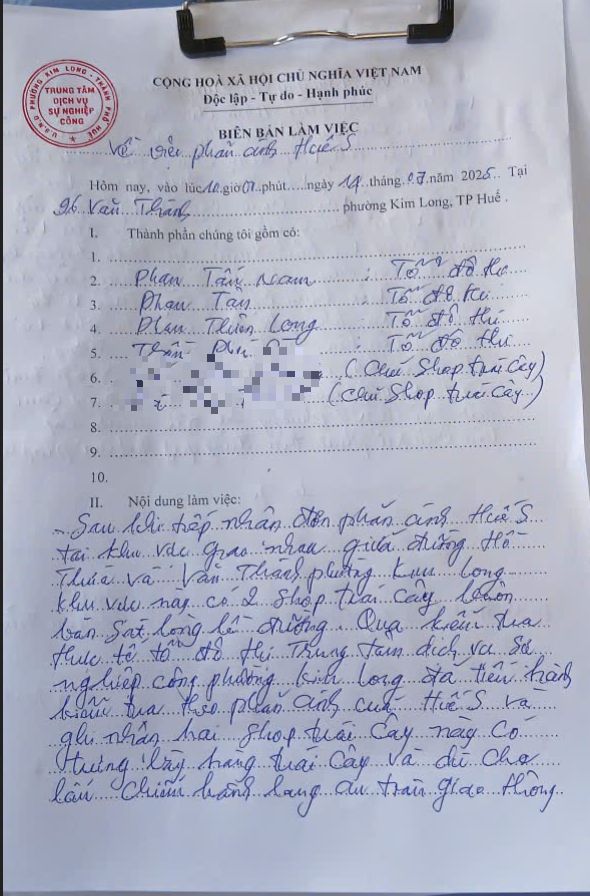 U.B.N.D PHƯỜNG KIM LONG - THÀNH PHỐ HUẾ
TRUNG TÂM
DỊCH VỤ
SỰ NGHIỆP
CÔNG
CỘNG HOÀ XÃ HỘI CHỦ NGHĨA VIỆT NAM
Độc lập - Tự do - Hạnh phúc
BIÊN BẢN LÀM VIỆC
Về việc phản ánh Huế S
Hôm nay, vào lúc 10 giờ 01 phút....ngày 14 tháng 07 năm 2025 Tại
96 Văn Thánh phường Kim Long, TP Huế .
I. Thành phần chúng tôi gồm có:
1.
2. Phan Tấn Nam : Tổ đô thị
3. Phan Tấn Tổ đô thị
4. Phan Thiên Long : Tổ đô thị
5. Trần Phú : Tổ đô thị
6. (Chủ Shop trái Cây)
7. (Chủ Shop trái Cây)
8.
9.
10.
II. Nội dung làm việc:
- Sau khi tiếp nhận đơn phản ánh Huế S
tại khu vực giao nhau giữa đường Hồ
Thừa và Văn Thánh phường Kim Long
khu vực này có 2 Shop trái cây buôn
bán sát lòng lề đường. Qua kiểm tra
thực tế tổ đô thị Trung tâm dịch vụ sự
nghiệp công phường Kim Long đã tiến hành
kiểm tra theo phản ánh của Huế S và
ghi nhận hai Shop trái Cây này có
trưng bày hàng trái Cây và dù che
lấn chiếm hành lang an toàn giao thông